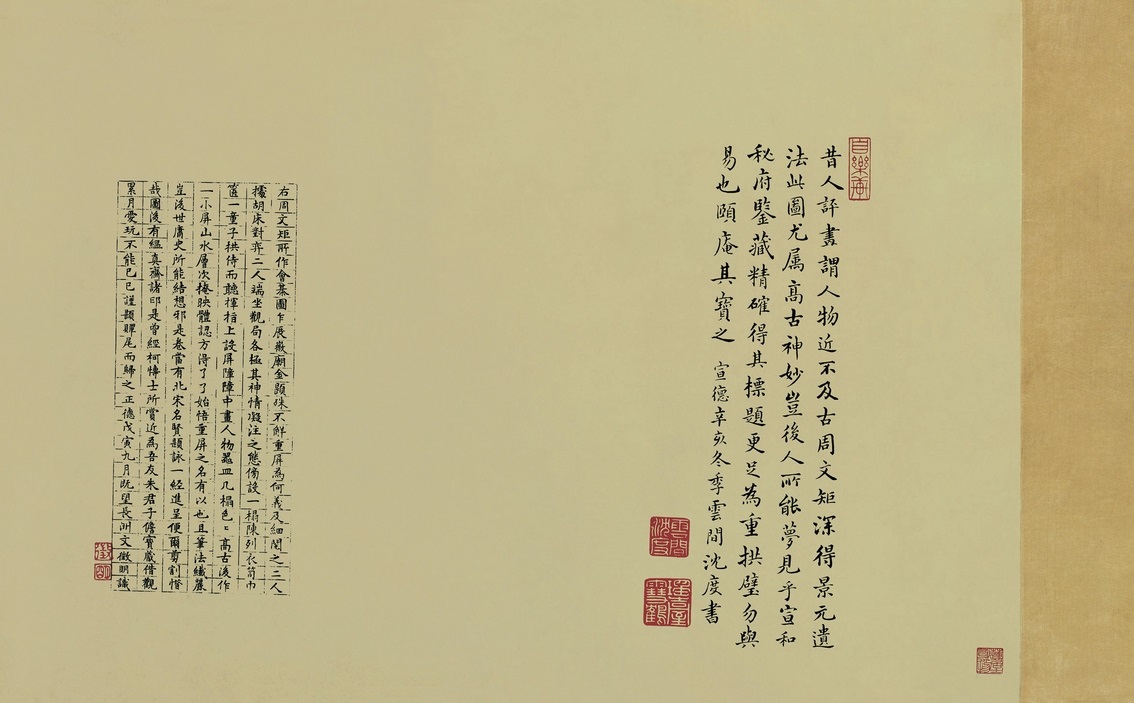 昔人評畫謂人物近不及古周文矩深得景元遺
法此圖尤属高古神妙豈後人所能夢見乎宣和
秘府鑒藏精確得其標題更足為重拱璧勿與
易也頤庵其寶之 宣德辛亥冬季雲間沈度書
自樂軒
雲間沈度
瑤臺雪鶴
右周文矩所作會棊圖乍展徽廟金題殊不觧重屏為何義及細閱之二人
據胡床對弈二人端坐觀局各極其神情凝注之態傍設一榻陳列衣笥巾
篋一童子拱侍而聽揮指上設屏障障中畫人物器皿几榻色〻高古後作
一小屏山水層次掩映體認方得了了始悟重屏之名有以也且筆法纖麗
豈後世庸史所能結想邪是卷當有北宋名賢題詠一經進呈便爾剪割惜
哉圖後有緼真齋諸印是曾經柯博士所賞近為吾友朱君子儋寶藏借觀
累月愛玩不能已已謹題贉尾而歸之正德戊寅九月既望長洲文徵明識
徵明